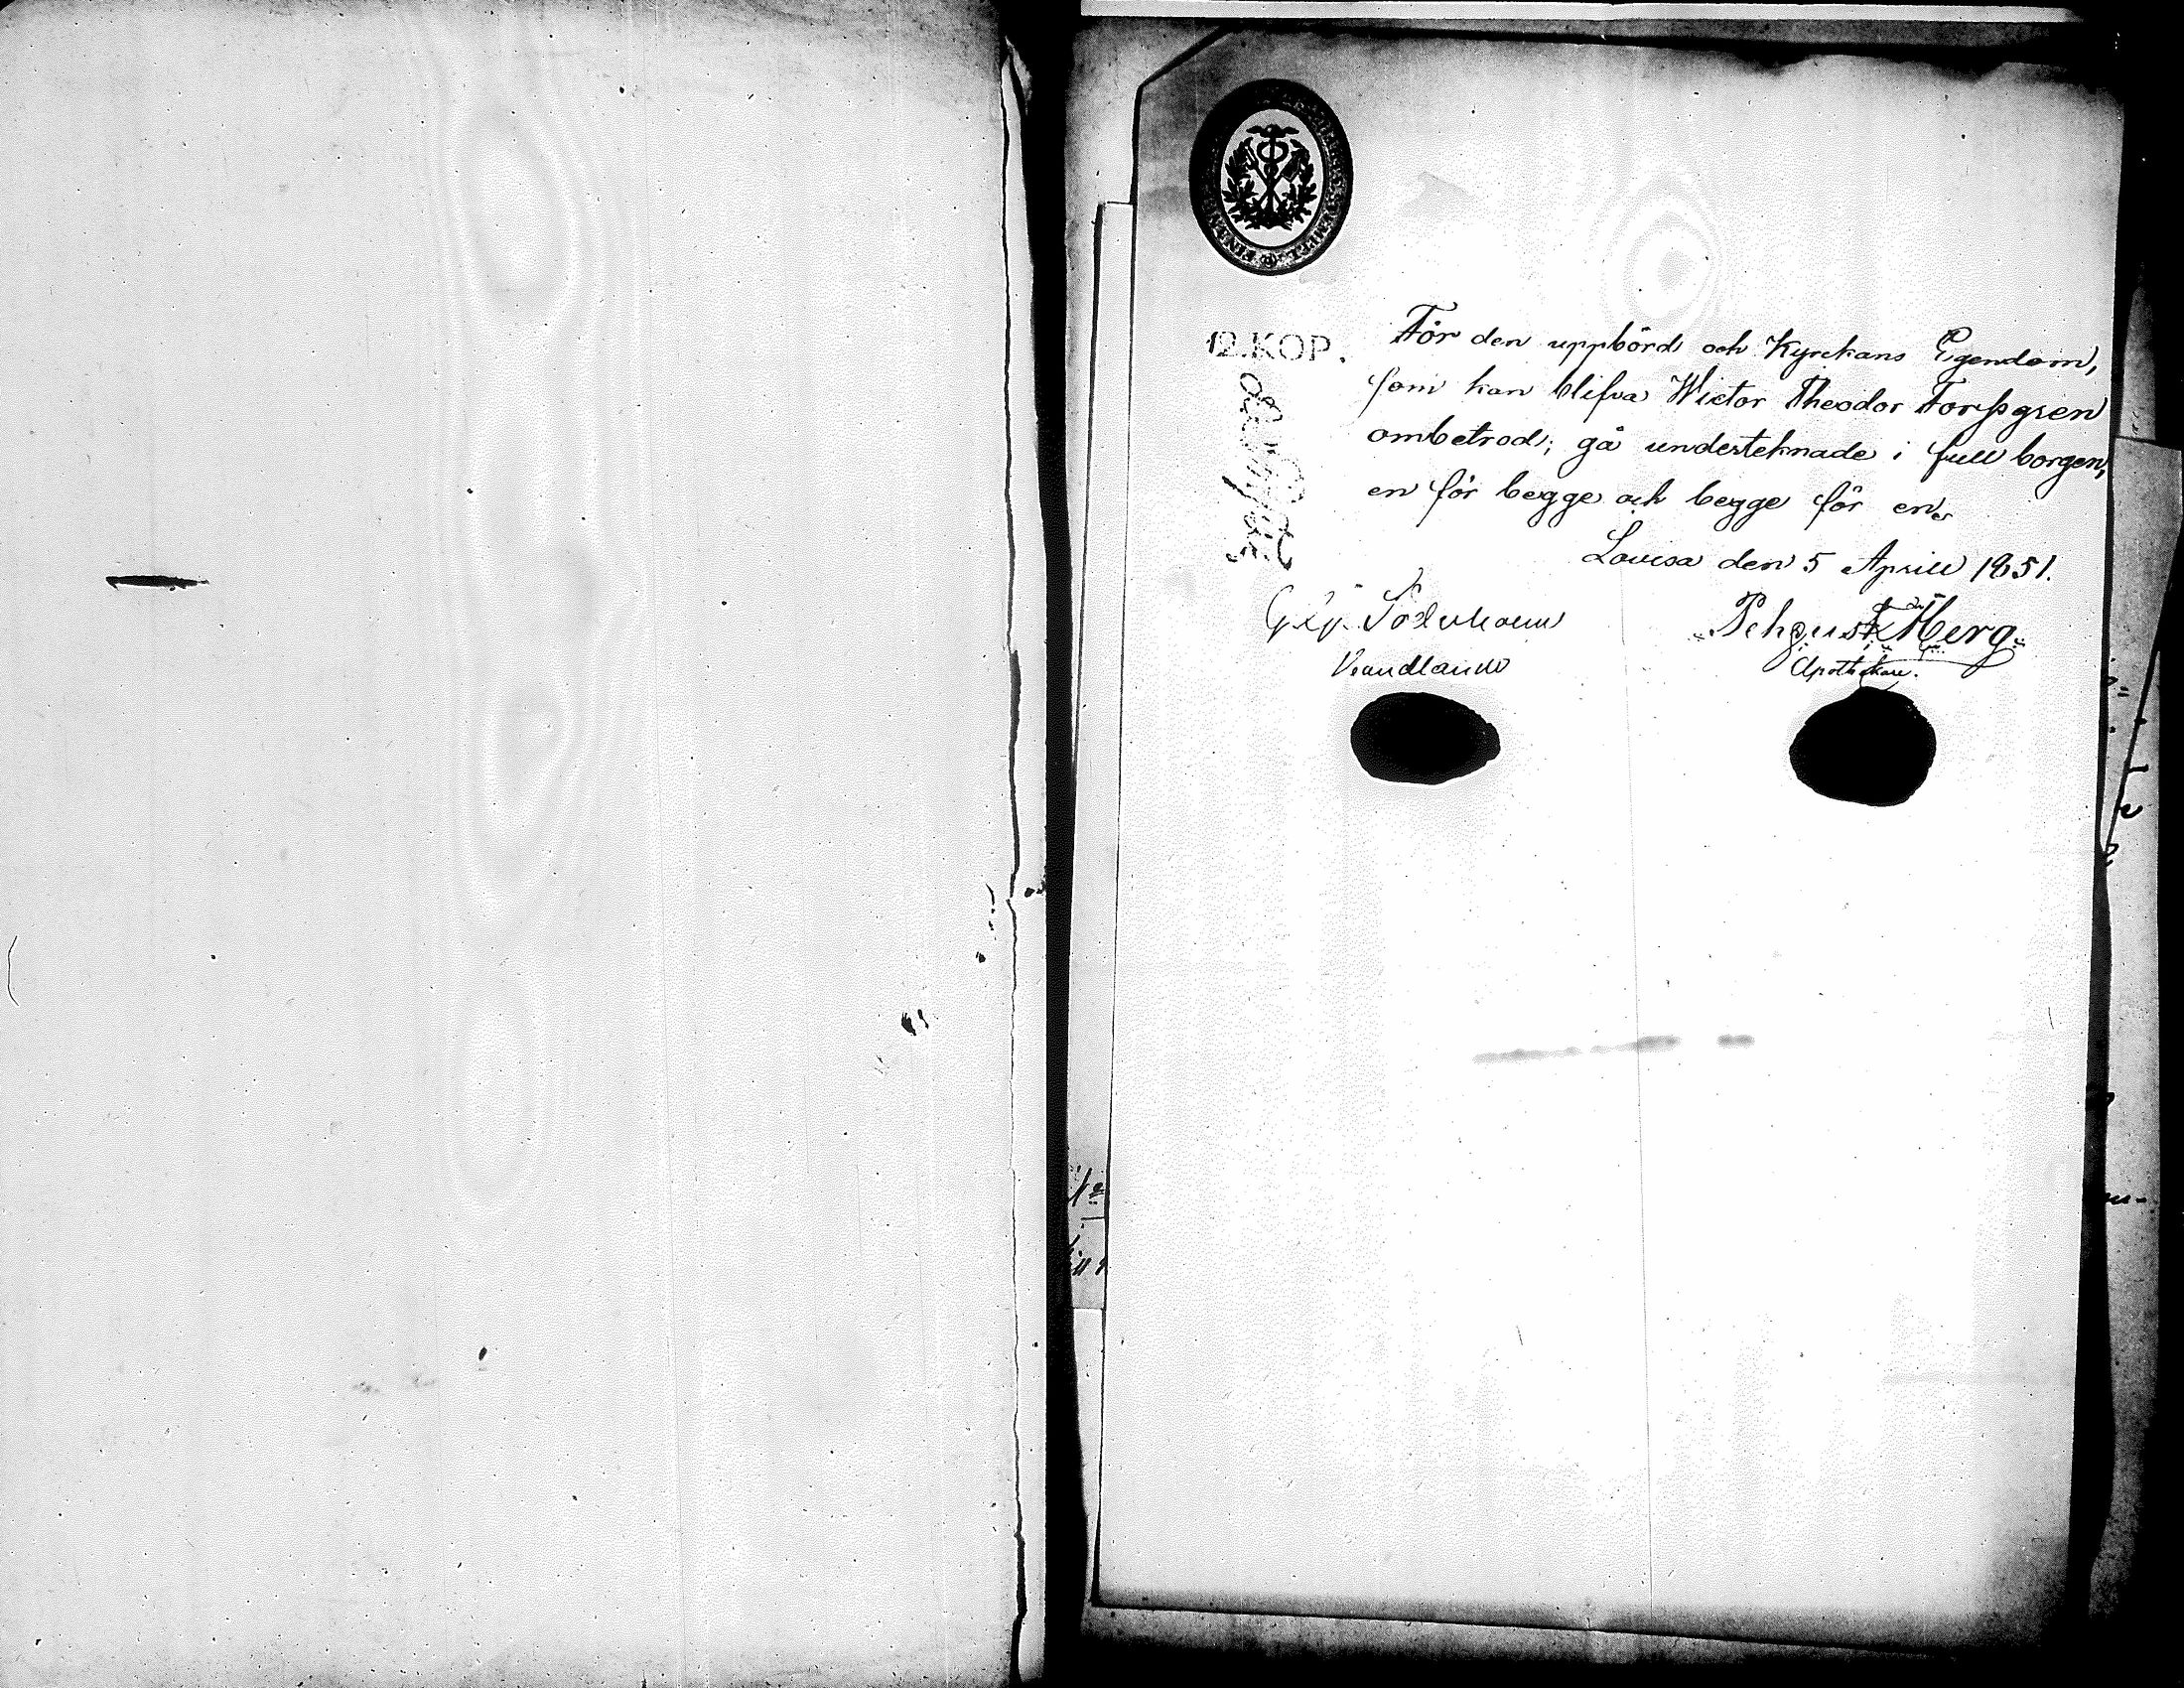 12. KOP.
För den uppbörd och Kyrckans Egendom,
som kan blifva Wictor Theodor Forssgren
ombetrod; gå underteknade i full borgen,
en för begge och begge för en.
Lovisa den 5 Aprill 1851.
Söderholm Berg
Handlande Apothekare.